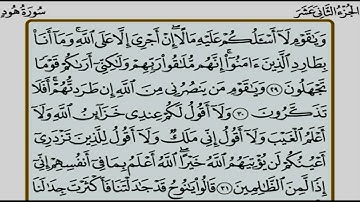 سُورَةُ هُودٍ الجُزْءُ الثَّانِي عَشَرَ
وَيَٰقَوْمِ لَآ أَسْـَٔلُكُمْ عَلَيْهِ مَالًا ۖ إِنْ أَجْرِىَ إِلَّا عَلَى ٱللَّهِ ۚ وَمَآ أَنَا۠
بِطَارِدِ ٱلَّذِينَ ءَامَنُوٓا۟ ۚ إِنَّهُم مُّلَٰقُوا۟ رَبِّهِمْ وَلَٰكِنِّىٓ أَرَىٰكُمْ قَوْمًا
تَجْهَلُونَ ٢٩ وَيَٰقَوْمِ مَن يَنصُرُنِى مِنَ ٱللَّهِ إِن طَرَدتُّهُمْ ۚ أَفَلَا
تَذَكَّرُونَ ٣٠ وَلَآ أَقُولُ لَكُمْ عِندِى خَزَآئِنُ ٱللَّهِ وَلَآ
أَعْلَمُ ٱلْغَيْبَ وَلَآ أَقُولُ إِنِّى مَلَكٌ وَلَآ أَقُولُ لِلَّذِينَ تَزْدَرِىٓ
أَعْيُنُكُمْ لَن يُؤْتِيَهُمُ ٱللَّهُ خَيْرًا ۖ ٱللَّهُ أَعْلَمُ بِمَا فِىٓ أَنفُسِهِمْ ۖ إِنِّىٓ
إِذًا لَّمِنَ ٱلظَّٰلِمِينَ ٣١ قَالُوا۟ يَٰنُوحُ قَدْ جَٰدَلْتَنَا فَأَكْثَرْتَ جِدَٰلَنَا